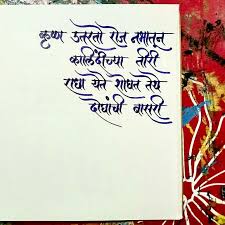 कृष्ण उतरतो रोज नभातून
कालिंदीच्या तीरी
राधा येते शोधत तेथे
दोघांची बासरी